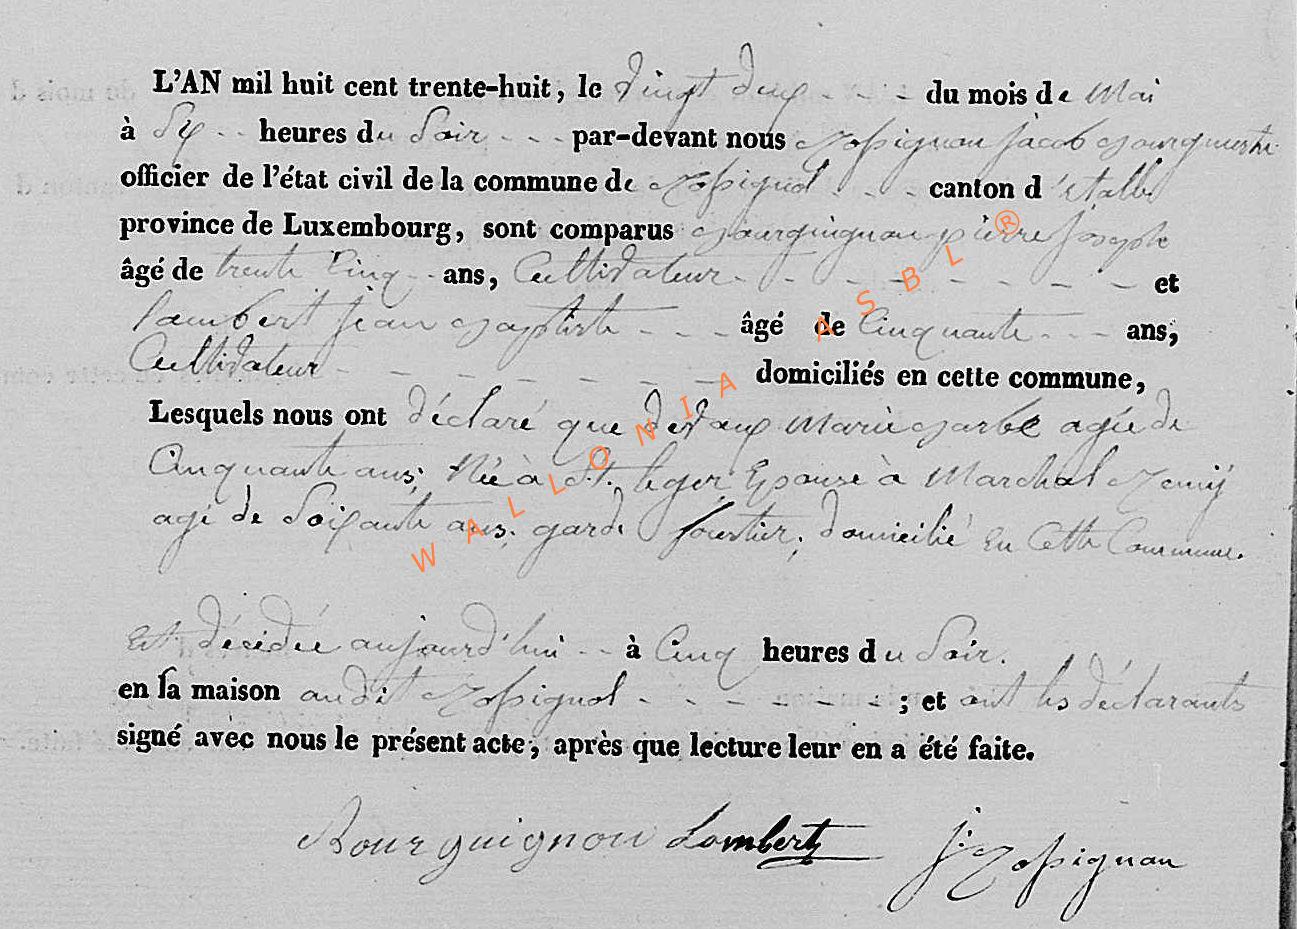 L'AN mil huit cent trente-huit, le vingt deux - - - du mois de Mai
à Six - - heures du Soir - - - par-devant nous Rossignon jacob Bourguemestre
officier de l'état civil de la commune de Rossignol - - - canton d'etalle
province de Luxembourg, sont comparus Bourguignon pierre joseph
âgé de trente Cinq - - ans, Cultivateur - - - - - - - - - et
Lambert jean Baptiste - - - - âgé de Cinquante - - - ans,
Cultivateur - - - - - - - domiciliés en cette commune,
Lesquels nous ont déclaré que devaux Marie Barbe agée de
Cinquante ans; Née à St. leger, Epouse à Marchal Remij
agé de Soixante ans. garde forestier, domicilié En Cette Commune.
Est décédée aujourd'hui - - à Cinq heures du Soir.
en sa maison audit Rossignol - - - - - - - ; et ont les déclarants
signé avec nous le présent acte, après que lecture leur en a été faite.
Bourguignon Lambert j. Rossignon
WALLONIA ASBL ®